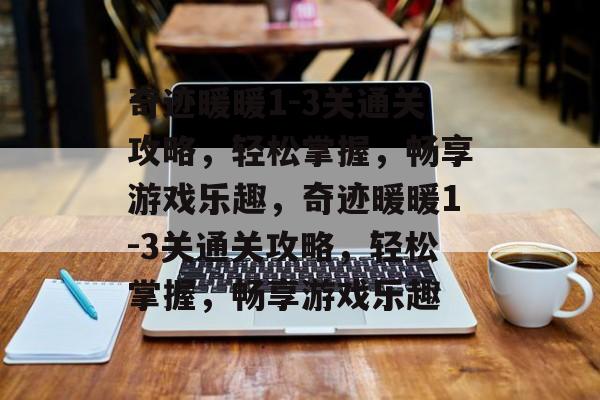 奇迹暖暖1-3关通关
攻略，轻松掌握，畅享
游戏乐趣，奇迹暖暖1
-3关通关攻略，轻松
掌握，畅享游戏乐趣